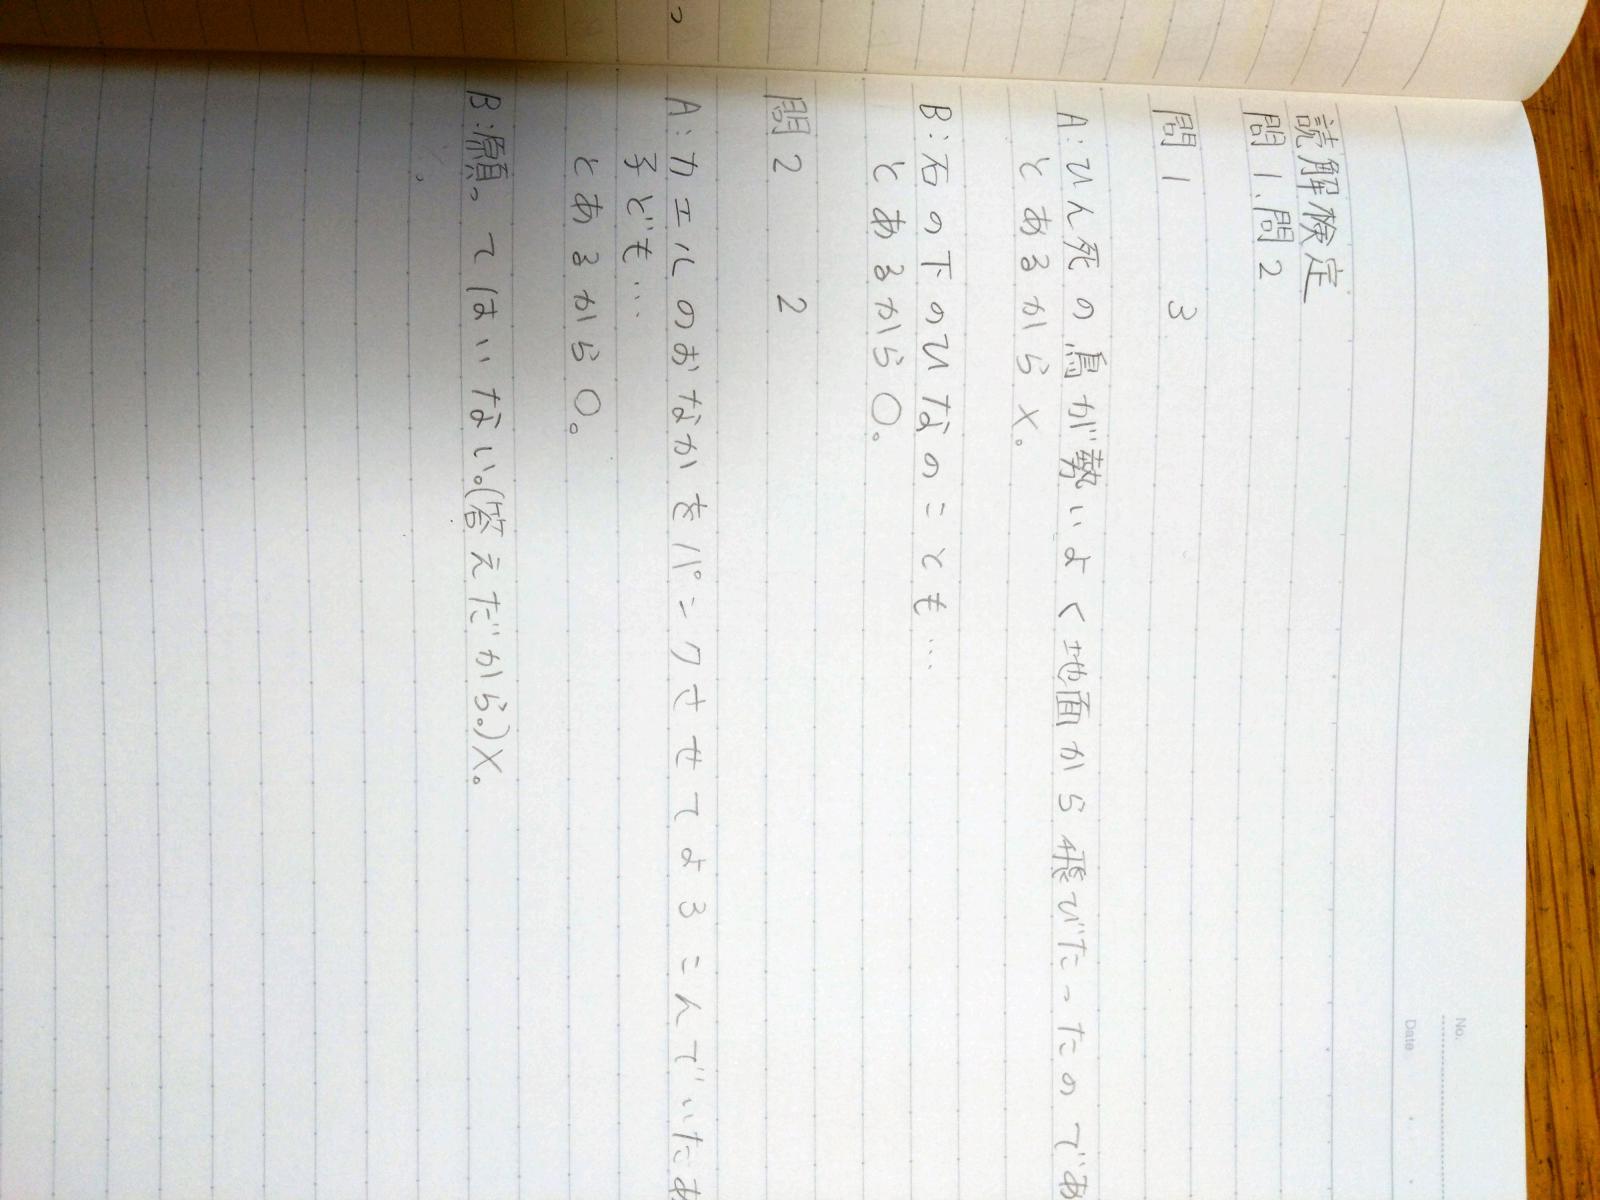 No.
Date
読解検定
問1.問2
問1 3
A:ひん死の鳥が勢いよく地面から飛びたったのであ
とあるから×。
B:石の下のひなのことも…
とあるから○。
問2 2
A:カエルのおなかをパンクさせてよろこんでいたあ
子ども…
とあるから○。
B:願ってはいない。(答えだから。)×。